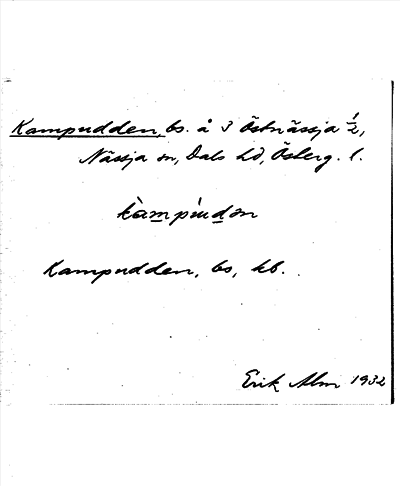 Kampudden, bs. å 3 Östnässja ½,
Nässja sn, Dals hd, Österg. l.
kàmpúdən
Kampudden, bs, kb.
Erik Alm 1932